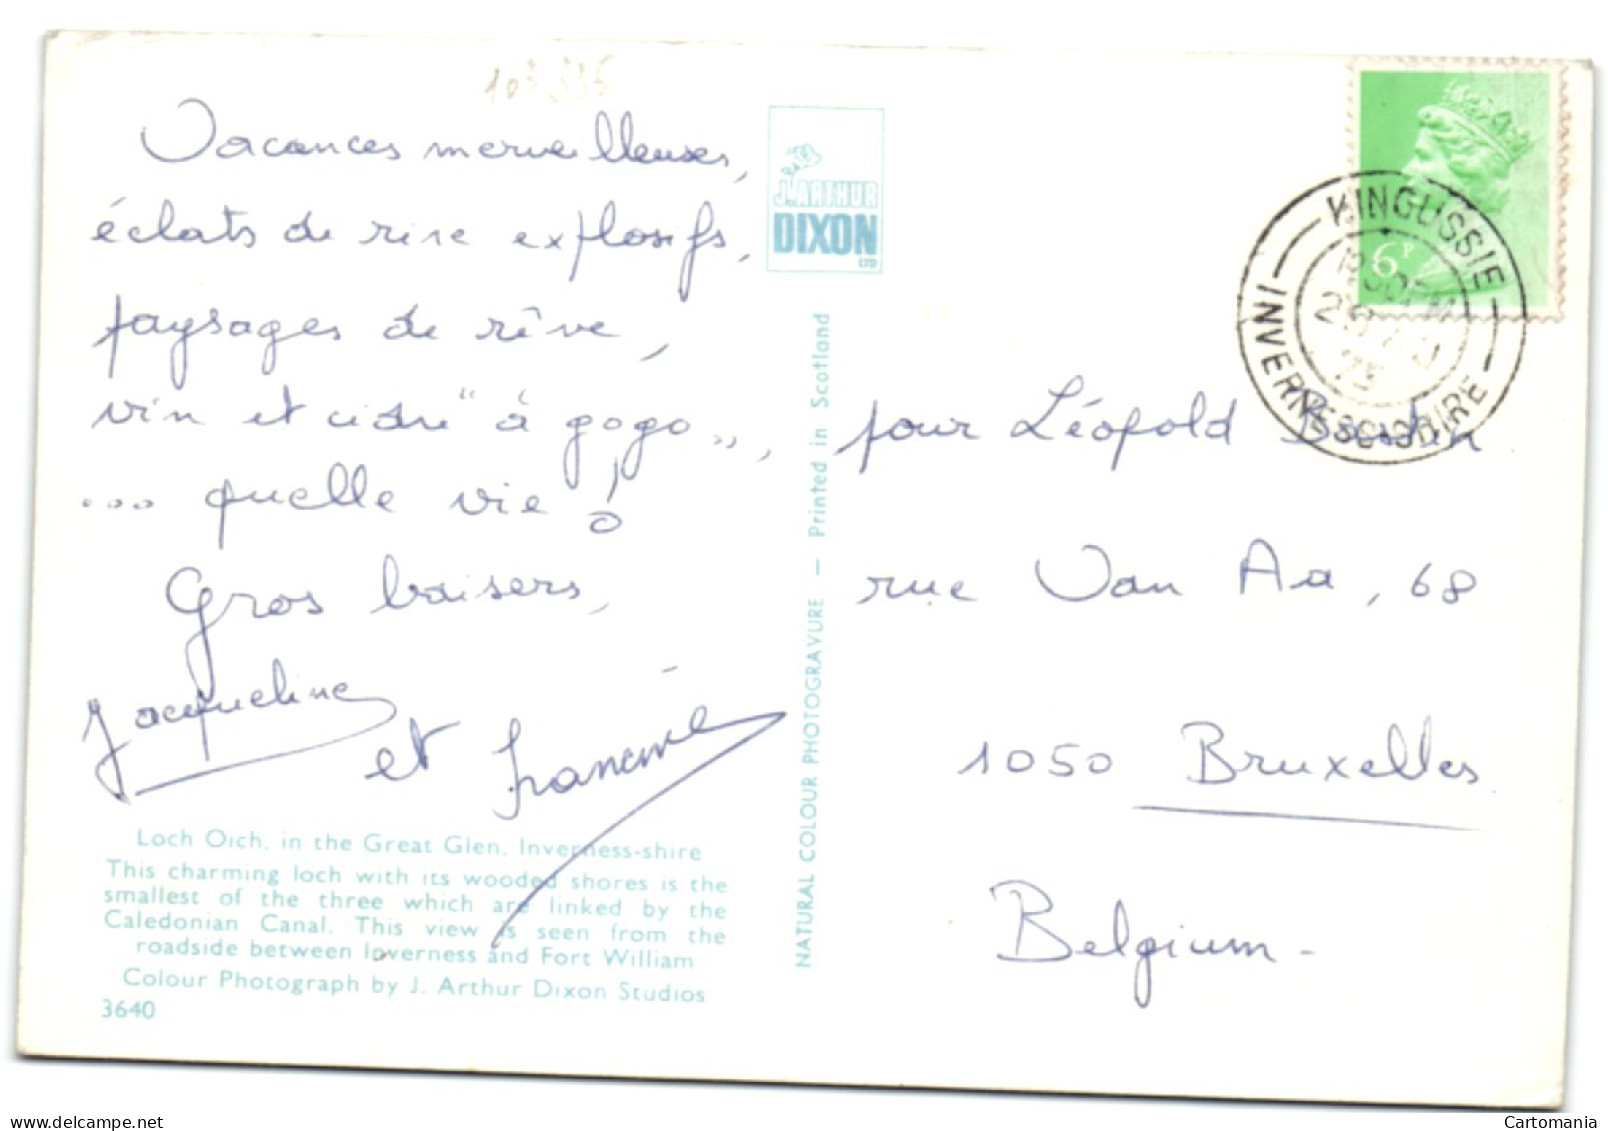 103 336
Vacances merveilleuses,
éclats de rire explosifs,
paysages de rêve,
vin et cidre "à gogo",
... quelle vie !
Gros baisers,
Jacqueline
et Francine
Loch Oich, in the Great Glen, Inverness-shire
This charming loch with its wooded shores is the
smallest of the three which are linked by the
Caledonian Canal. This view is seen from the
roadside between Inverness and Fort William
Colour Photograph by J. Arthur Dixon Studios
3640
J. ARTHUR
DIXON
LTD
NATURAL COLOUR PHOTOGRAVURE — Printed in Scotland
6P
KINGUSSIE
INVERNESS-SHIRE
pour Léopold
rue Van Aa, 68
1050 Bruxelles
Belgium -
Cartomania